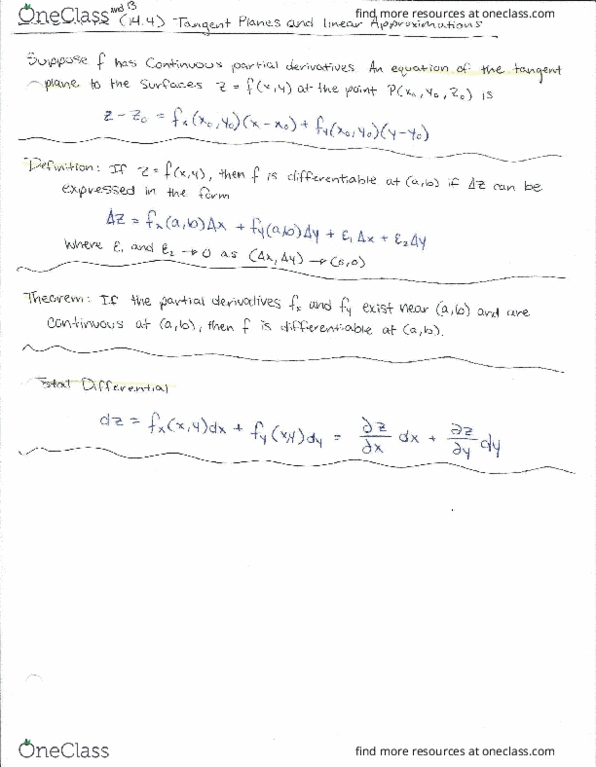 OneClass
and 13
find more resources at oneclass.com
(14.4) Tangent Planes and linear Approximations
Suppose f has Continuous partial derivatives An equation of the tangent
plane to the surfaces z = f(x,y) at the point P(x₀, y₀, z₀) is
z - z₀ = fₓ(x₀,y₀)(x-x₀) + f_y(x₀,y₀)(y-y₀)
Definition: If z = f(x,y), then f is differentiable at (a,b) if Δz can be
expressed in the form
Δz = fₓ(a,b)Δx + f_y(a,b)Δy + ε₁Δx + ε₂Δy
where ε₁ and ε₂ → 0 as (Δx, Δy) → (0,0)
Theorem: If the partial derivatives fₓ and f_y exist near (a,b) and are
continuous at (a,b), then f is differentiable at (a,b).
Total Differential
dz = fₓ(x,y)dx + f_y(x,y)dy = ∂z/∂x dx + ∂z/∂y dy
OneClass
find more resources at oneclass.com